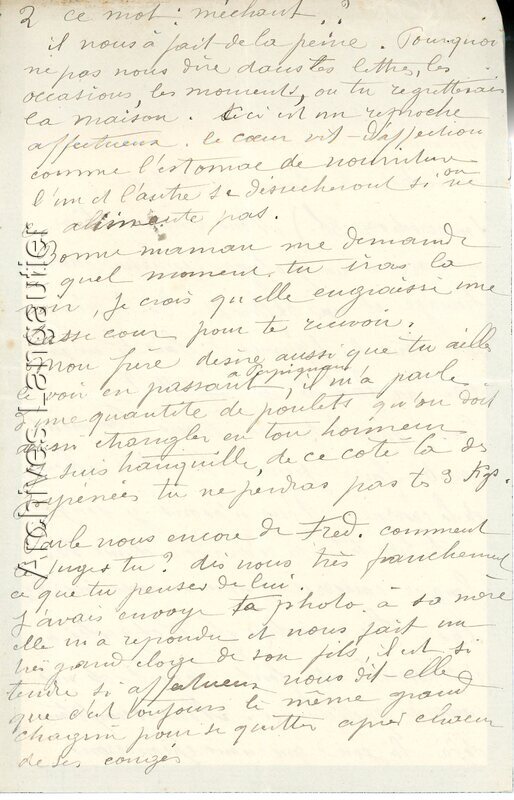 2 ce mot : méchant . . ?
il nous à fait de la peine . Pourquoi
ne pas nous dire dans tes lettres, les
occasions, les moments, ou tu regretterais
la maison . Ceci est un reproche
affectueux . le cœur vit d'affection
comme l'estomac de nourriture
l'un et l'autre se dessecheront si on ne
alimente pas .
Bonne maman me demande
quel moment tu iras la
voir, je crois qu'elle engraisse une
basse cour pour te recevoir .
mon frère désire aussi que tu ailles
le voir en passant à Perpignan, il m'a parlé
d'une quantité de poulets qu'on doit
aussi étrangler en ton honneur
suis tranquille, de ce coté là des
Pyrénées tu ne perdras pas tes 3 Kgs.
Parle nous encore de Fred . comment
juges tu ? dis nous très franchement
ce que tu penses de lui .
J'avais envoyé ta photo à sa mère
elle m'a repondu et nous fait un
très grand eloge de son fils, il est si
tendre si affectueux nous dit-elle
que c'est toujours le même grand
chagrin pour se quitter après chacun
de ses congés
Archives-Langautier